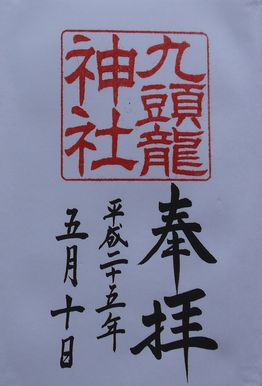 九頭龍
神社
奉拝
平成二十五年
五月十日